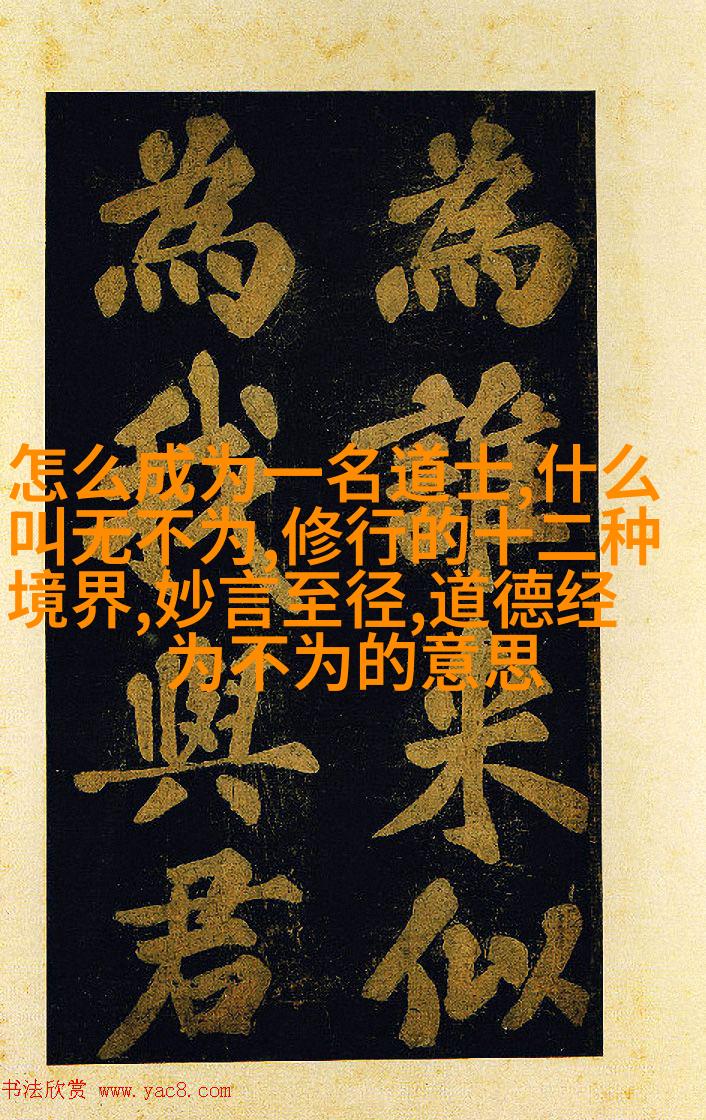 怎么成为一名道士,什么
叫无不为,修行的十二种
境界,妙言至径,道德经
为不为的意思
為誰来似
為我與君
书法欣赏 www.yac8.com